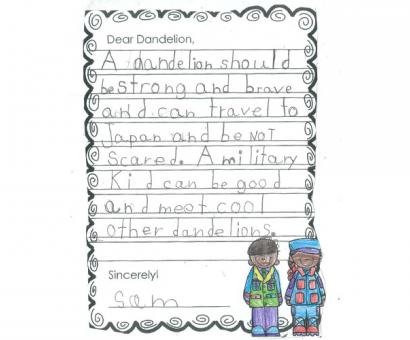 Dear Dandelion,
A dandelion should
be strong and brave
and can travel to
Japan and be NOT
Scared. A military
Kid can be good
and meet cool
other dandelions.
Sincerely!
Sam